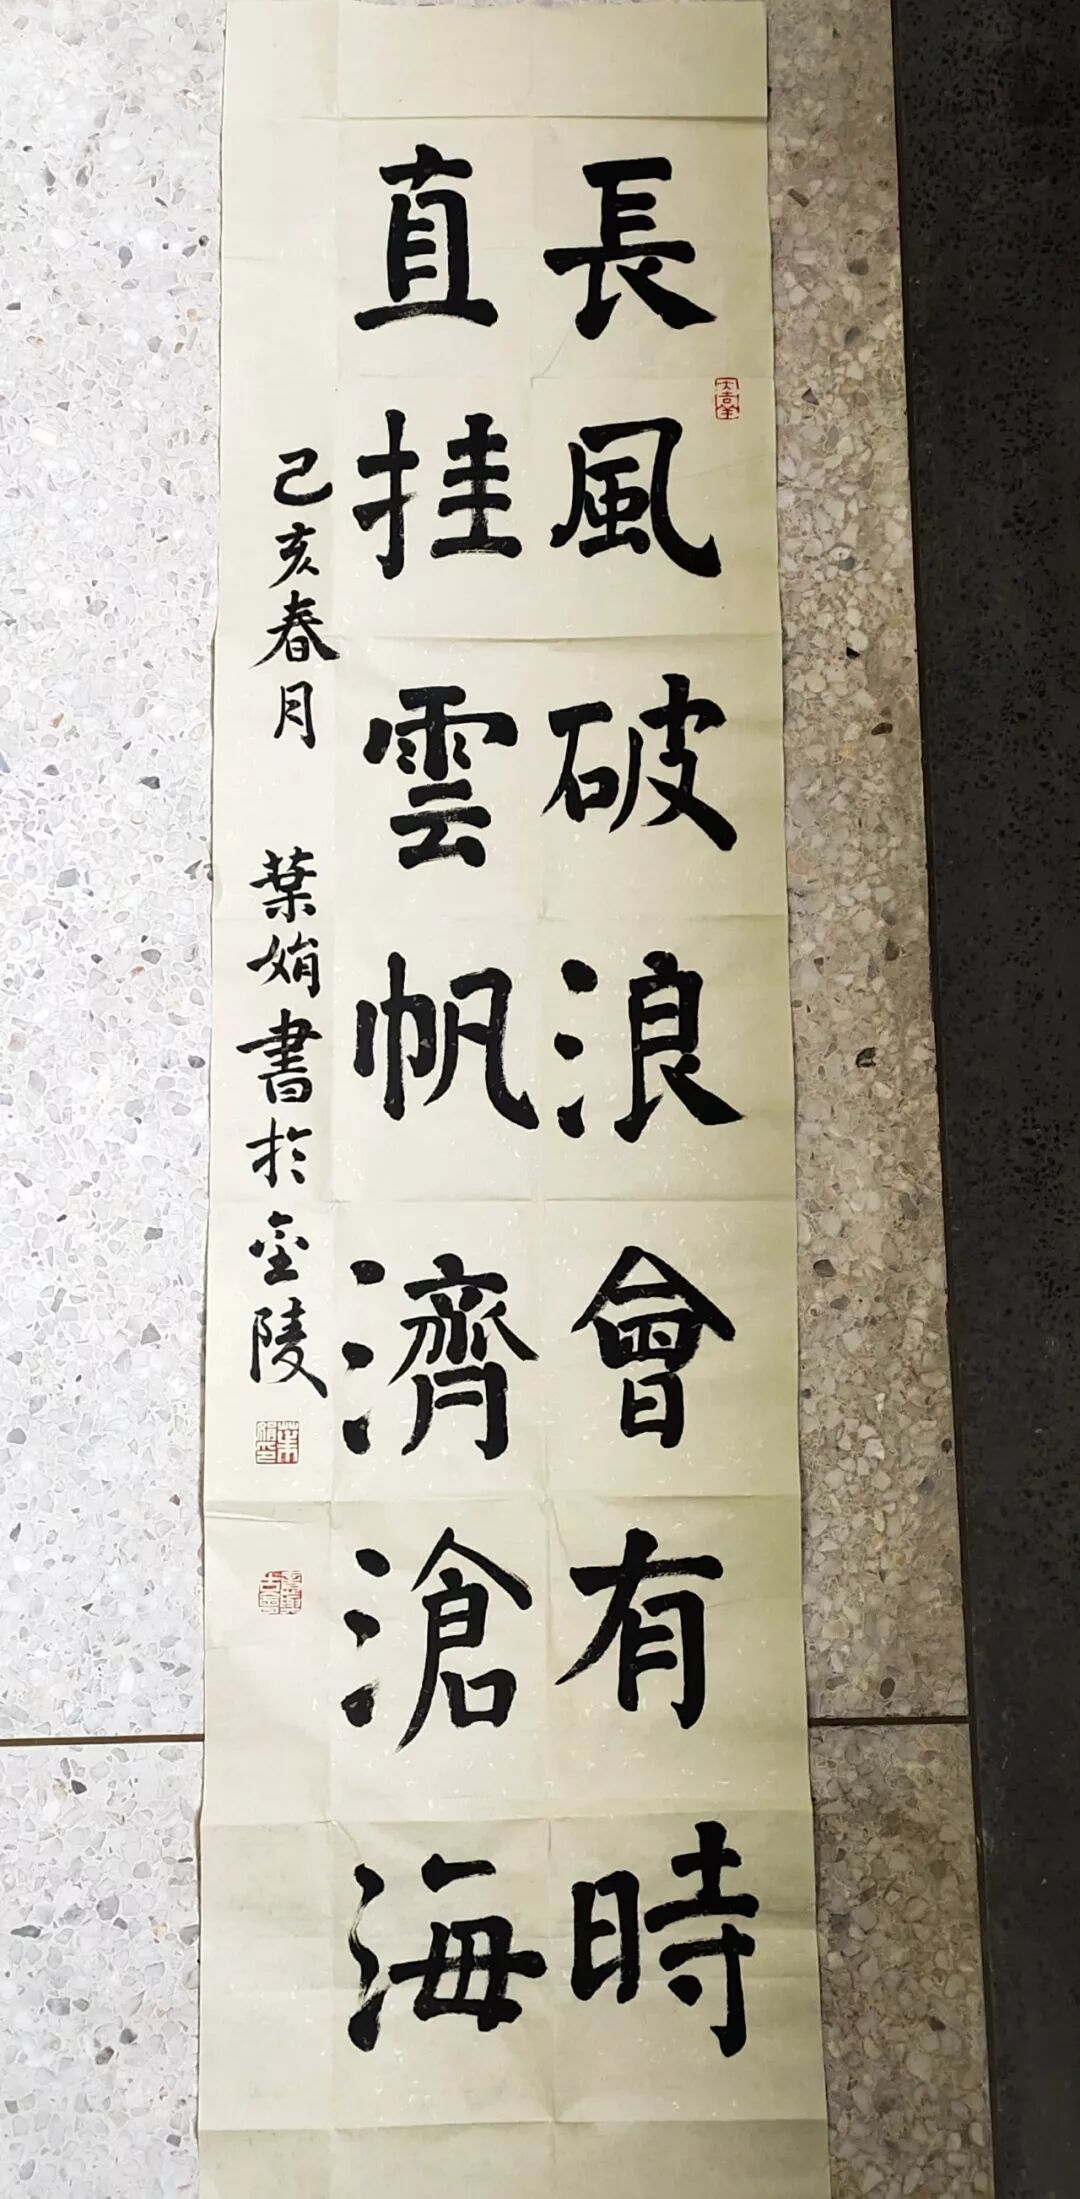 長風破浪會有時
直挂雲帆濟滄海
己亥春月 葉娟書於金陵
大吉羊
葉娟印